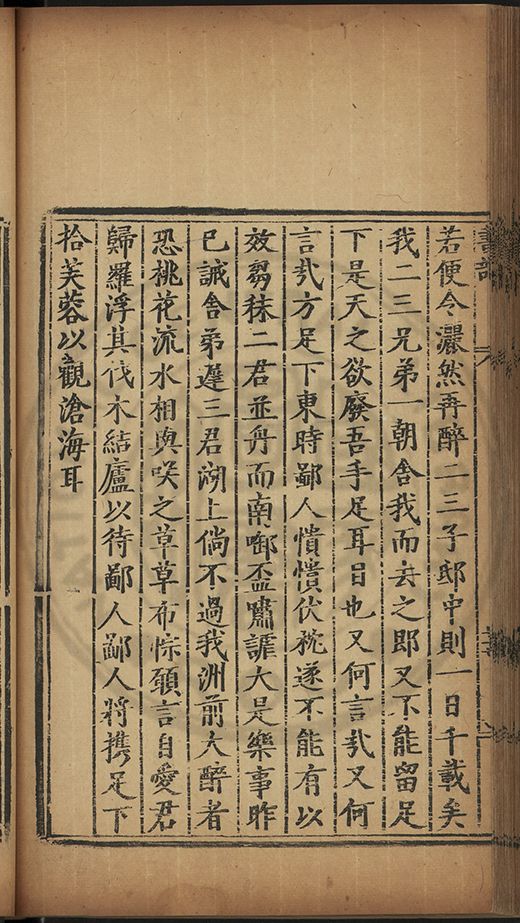 若便令灑然再醉二三子邸中則一日千載矣
我二三兄弟一朝舍我而去之即又不能留足
下是天之欲廢吾手足耳目也又何言哉又何
言哉方足下東時鄙人憒憒伏枕遂不能有以
效芻秣二君並舟而南啣盃嘯謔大是樂事昨
已誡舍弟遲三君湖上倘不過我洲前大醉者
恐桃花流水相與咲之草草布悰願言自愛君
歸羅浮其伐木結廬以待鄙人鄙人將攜足下
拾芙蓉以觀滄海耳